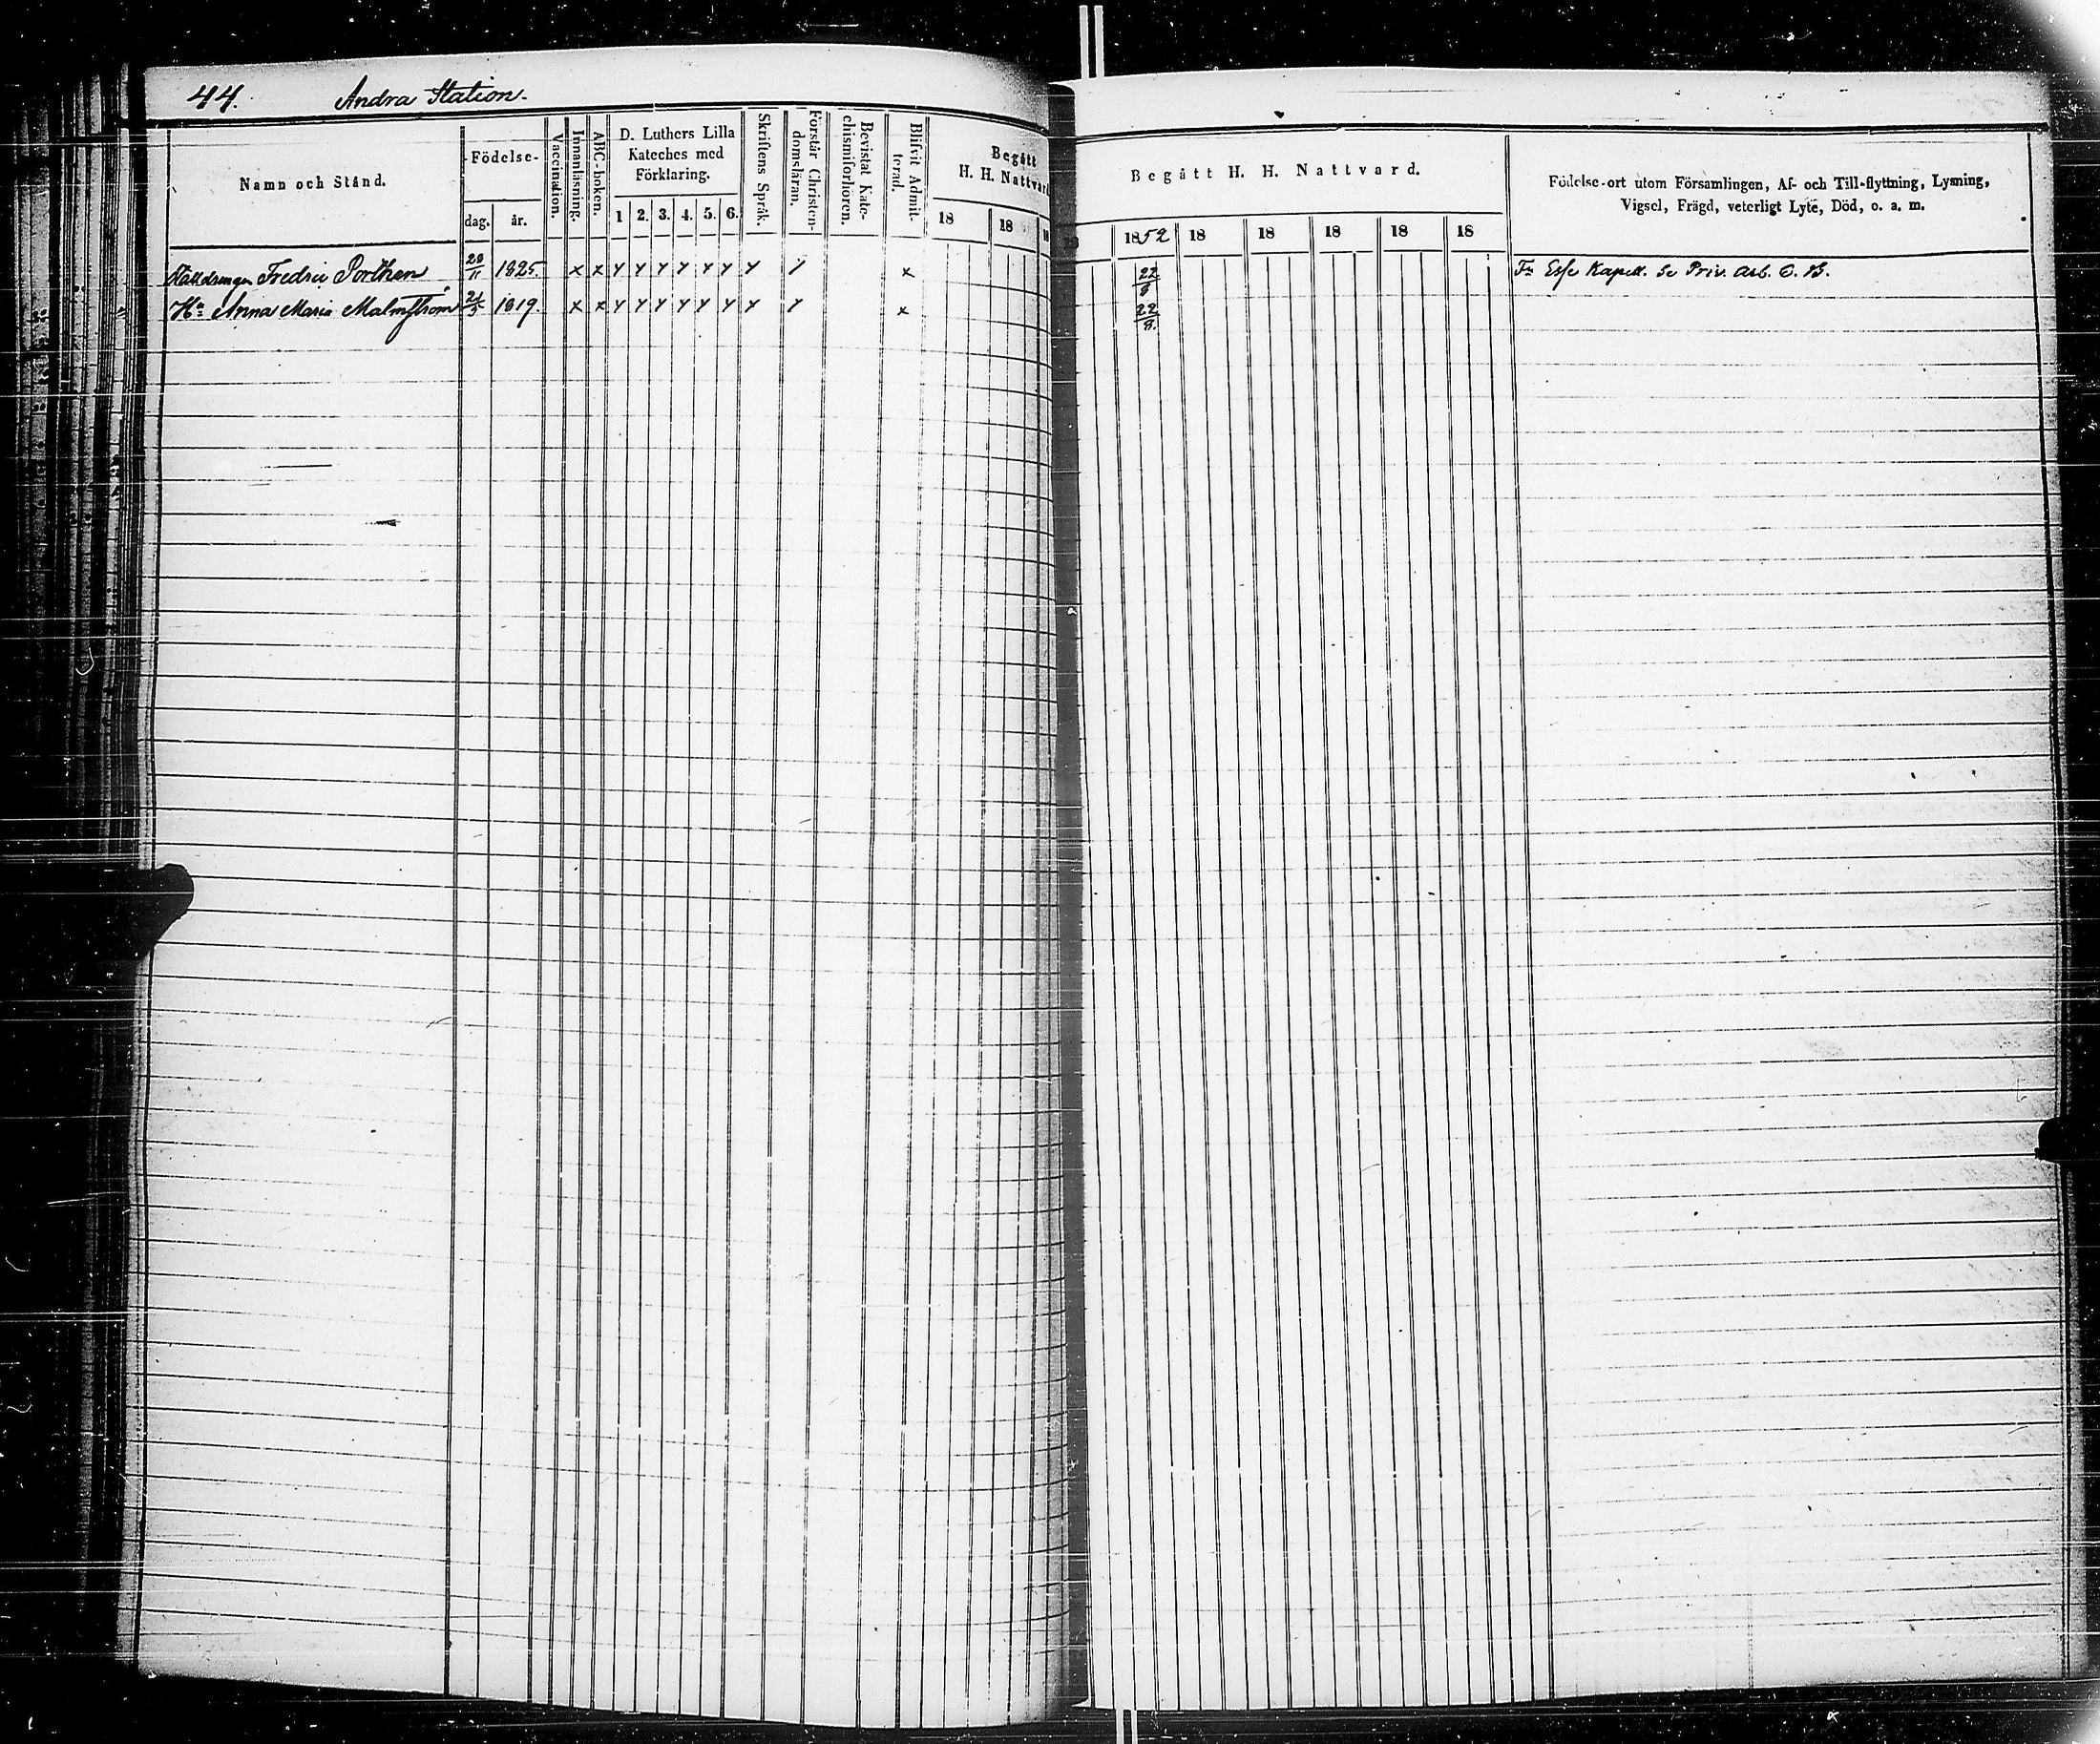 44. Andra Station.
Namn och Stånd.
Födelse-
dag. år.
Vaccination.
Innanläsning.
ABC-boken.
D. Luthers Lilla
Kateches med
Förklaring.
1 2. 3. 4. 5. 6.
Skriftens Språk.
Förstår Christen-
domsläran.
Bevistat Kate-
chismiförhören.
Blifvit Admit-
terad.
Begått
H. H. Nattvard
18 18
Begått H. H. Nattvard.
1852 18 18 18 18 18
Födelse-ort utom Församlingen, Af- och Till-flyttning, Lysning,
Vigsel, Frägd, veterligt Lyte, Död, o. a. m.
Fredric Porthen 28/11 1825. x x y y y y y y y / x 22/8 Fr. Esse Kapell. Se Priv. Arb. C. B.
Hu Anna Maria Malmström 21/5 1819. x x y y y y y y y / x 22/8.